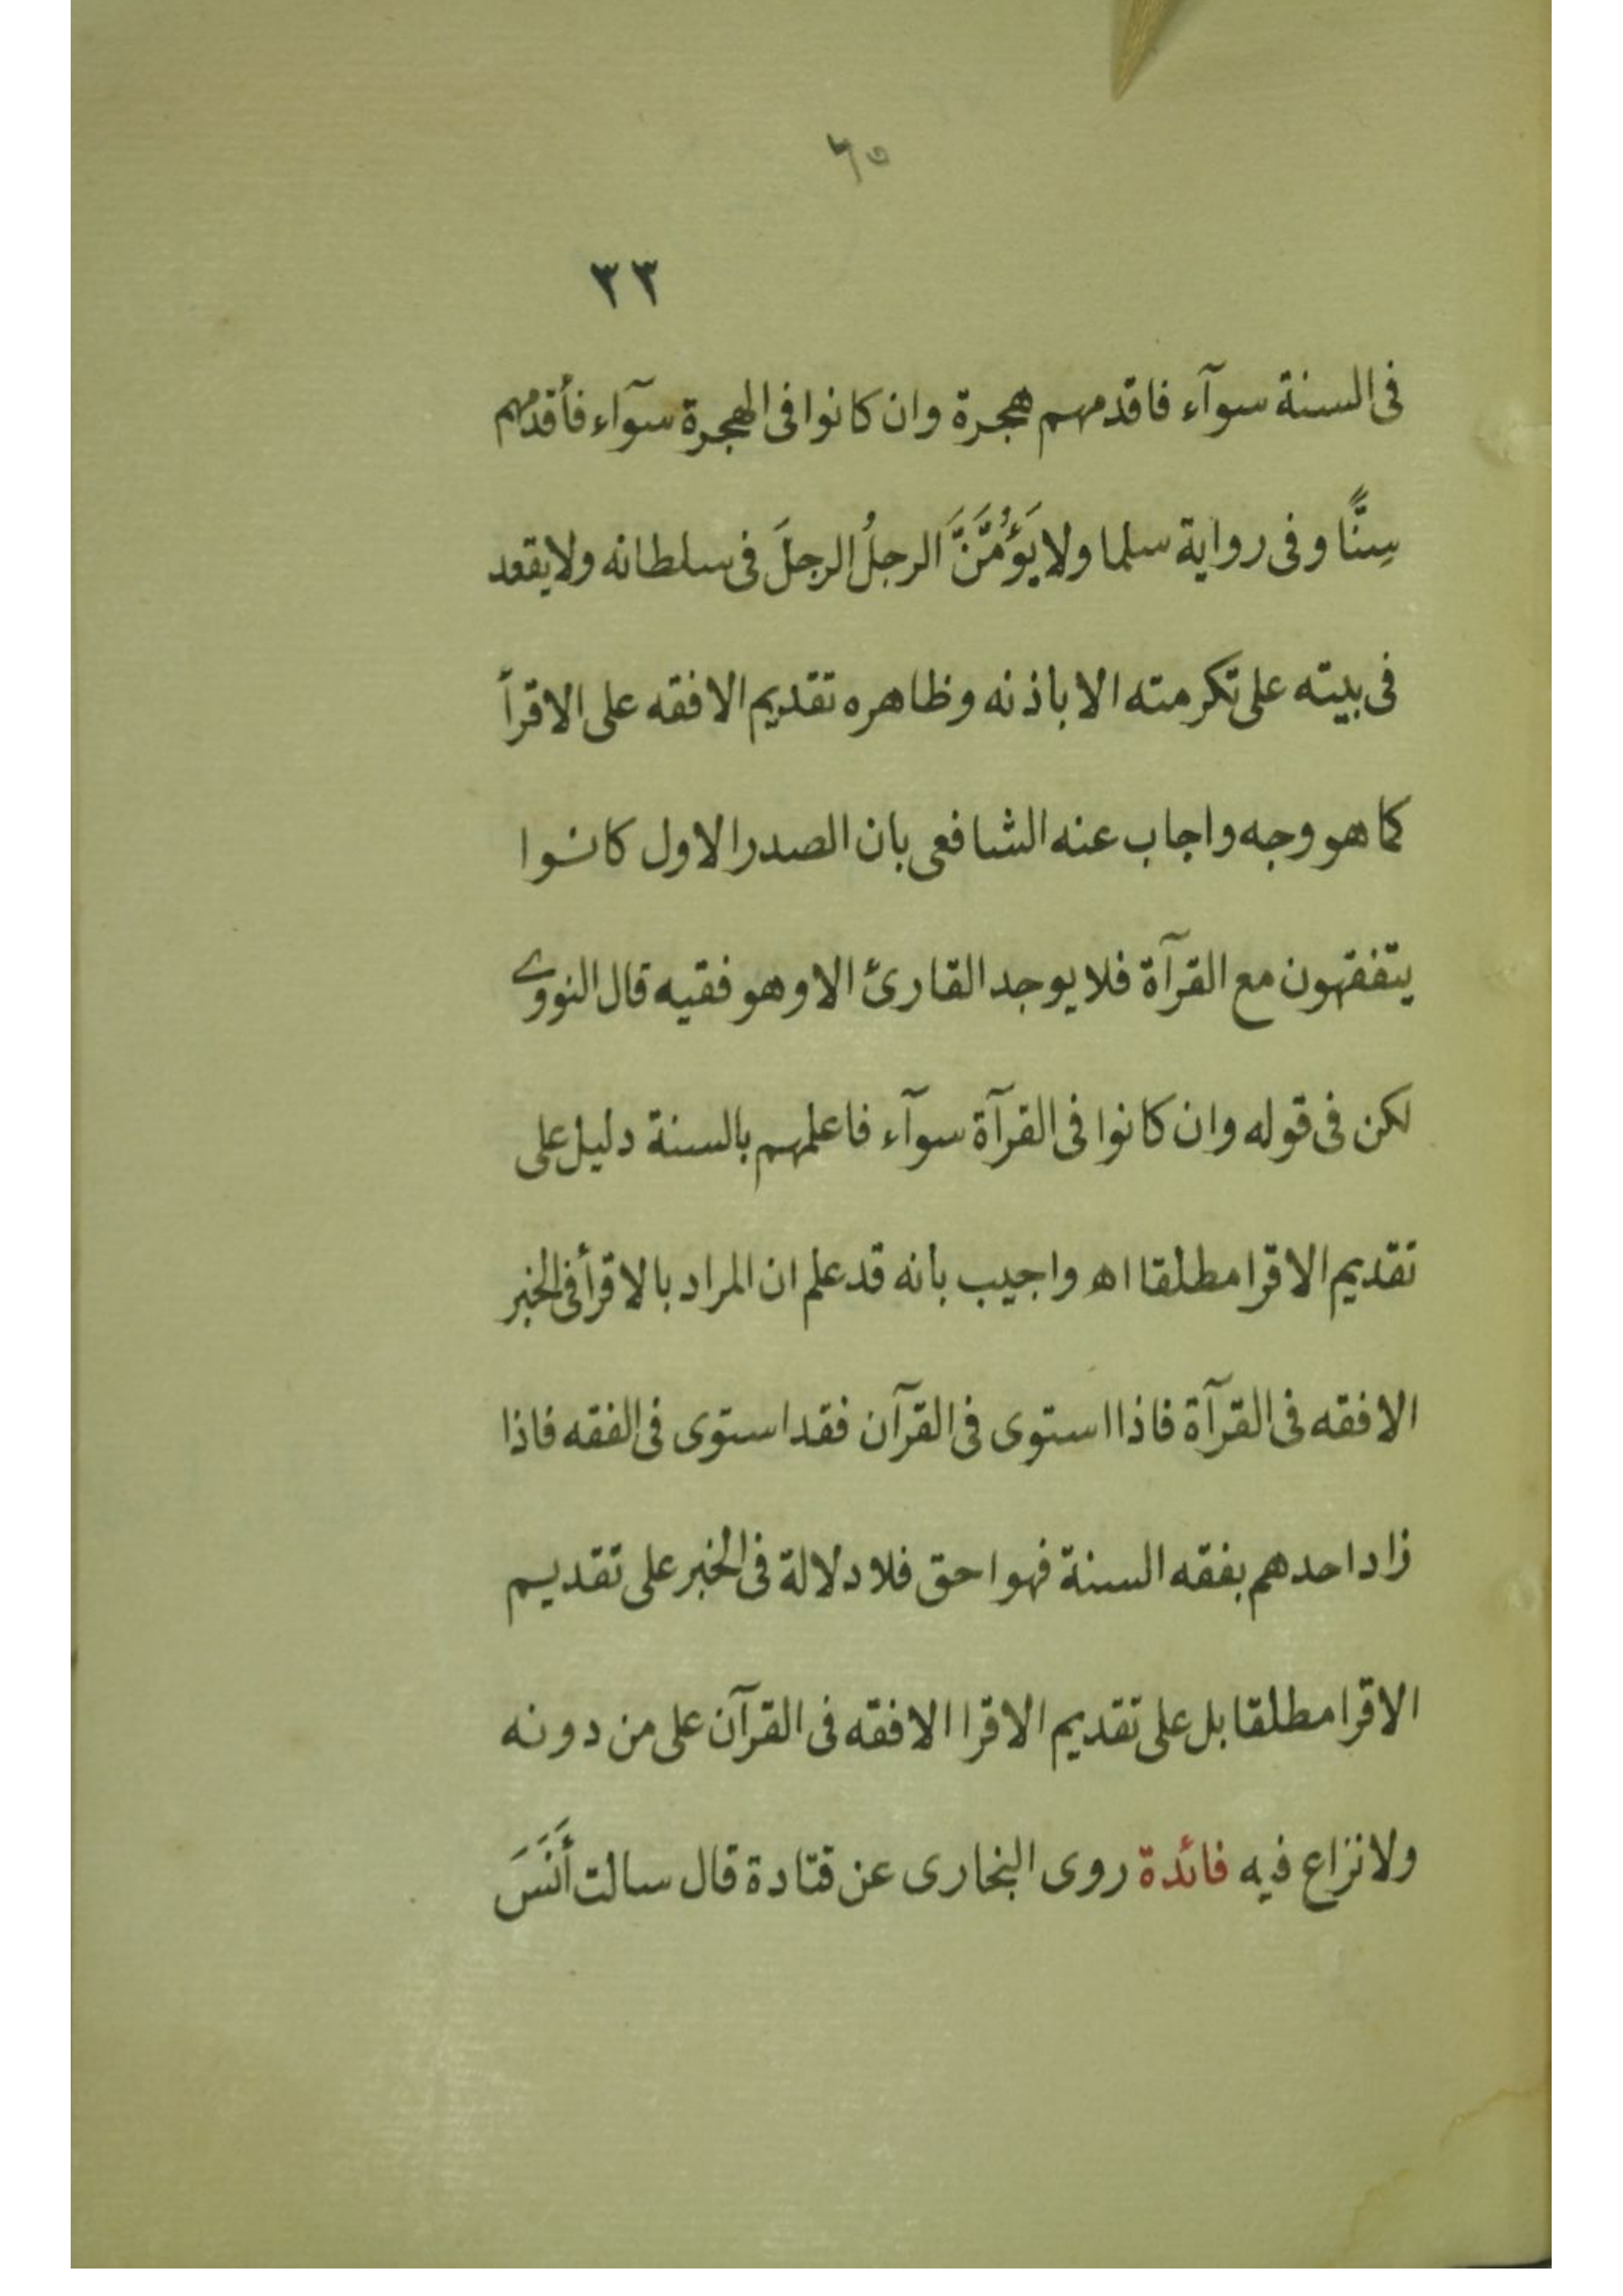 ٦٥
٣٣
فى السنة سوآء فاقدمهم هجرة وان كانوا فى الهجرة سوآء فأقدمهم
سِنًّا وفى رواية سلما ولا يَؤُمَّنَّ الرجلُ الرجلَ فى سلطانه ولا يقعد
فى بيته على تكرمته الا باذنه وظاهره تقديم الافقه على الاقرأ
كما هو وجه واجاب عنه الشافعى بان الصدر الاول كانوا
يتفقهون مع القرآة فلا يوجد القارئ الا وهو فقيه قال النووى
لكن فى قوله وان كانوا فى القرآة سوآء فاعلمهم بالسنة دليل على
تقديم الاقرا مطلقا اه واجيب بانه قد علم ان المراد بالاقرأ فى الخبر
الافقه فى القرآة فاذا استوى فى القرآن فقد استوى فى الفقه فاذا
زاد احدهم بفقه السنة فهو احق فلا دلالة فى الخبر على تقديم
الاقرا مطلقا بل على تقديم الاقرا الافقه فى القرآن على من دونه
ولا نزاع فيه فائدة روى البخارى عن قتادة قال سالت أَنَسَ